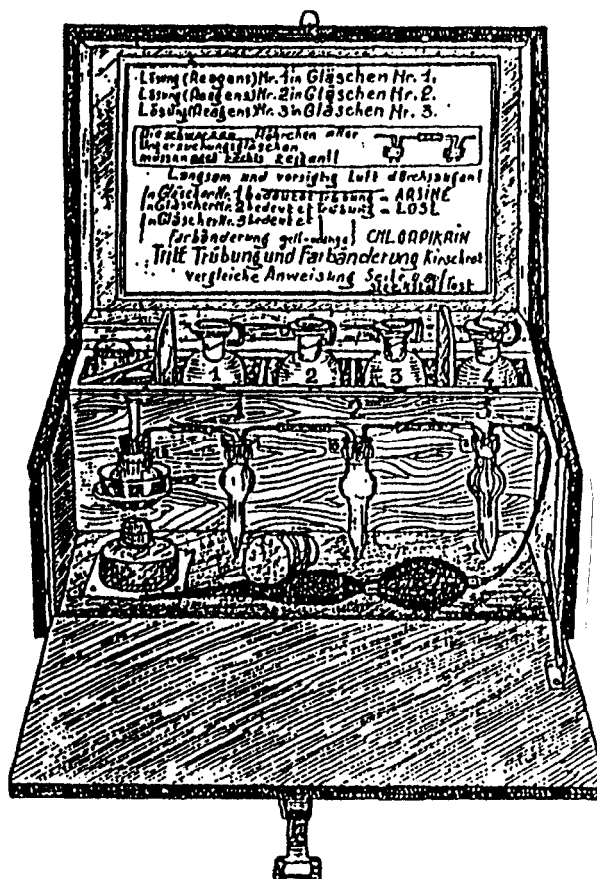 Lösung (Reagens) Nr. 1 in Gläschen Nr. 1.
Lösung (Reagens) Nr. 2 in Gläschen Nr. 2.
Lösung (Reagens) Nr. 3 in Gläschen Nr. 3.
Röhrchen aller
Untersuchungsgläschen
müssen nach rechts zeigen!!
Langsam und vorsigtig Luft durchsaugen!
In Gläscher Nr. 1 bedeutet Trübung = ARSINE
In Gläscher Nr. 2 bedeutet Trübung = LOST
In Gläscher Nr. 3 bedeutet
Farbänderung gelb CHLORPIKRIN
Tritt Trübung und Farbänderung Kirschrot
vergleiche Anweisung Seite
1 2 3 4
1 2 3